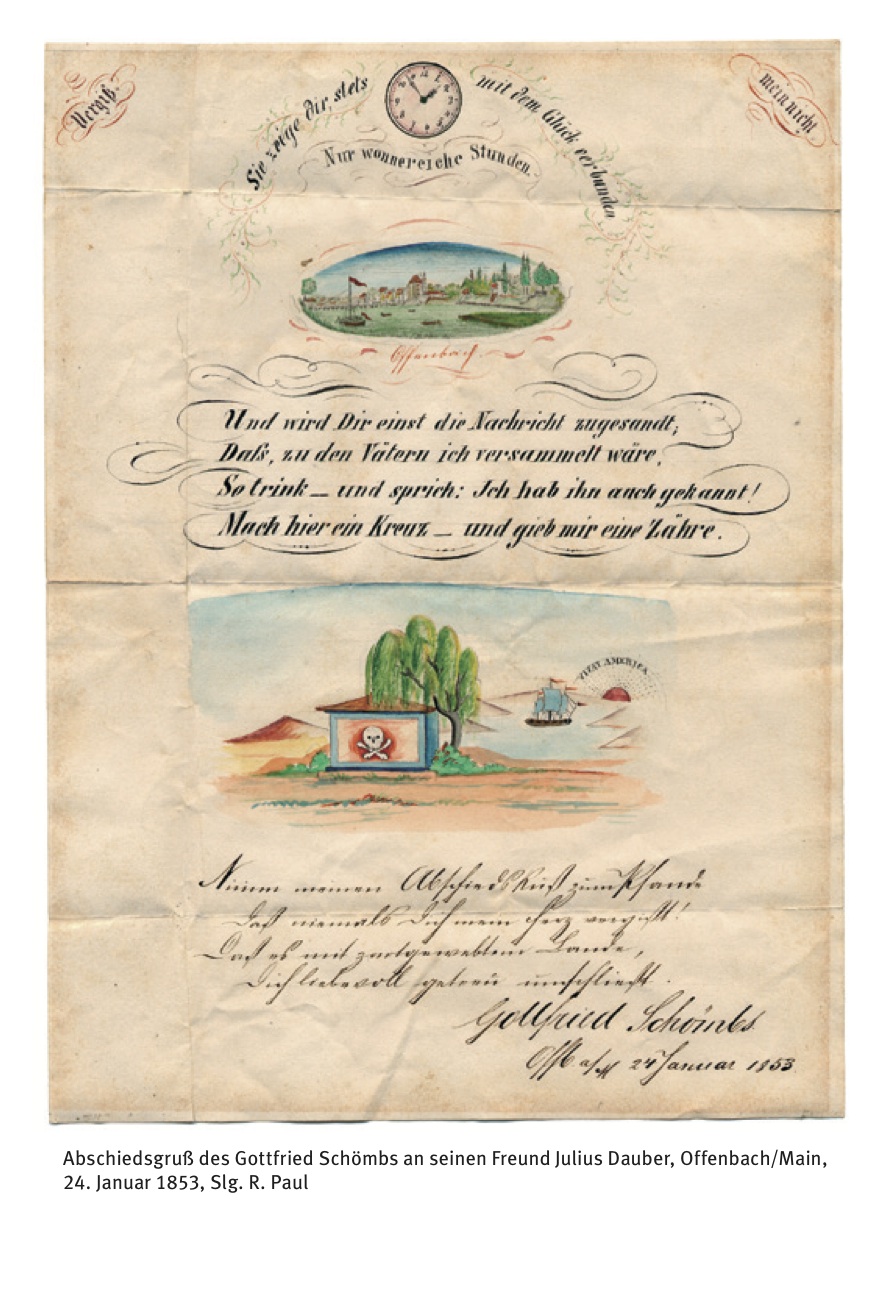 Vergiß.
Sie zeige dir, stets mit dem Glück verbunden
meinnicht
Nur wonnereiche Stunden.
Offenbach.
Und wird Dir einst die Nachricht zugesandt;
Daß, zu den Vätern ich versammelt wäre,
So trink _ und sprich: Ich hab ihn auch gekannt!
Mach hier ein Kreuz _ und gieb mir eine Zähre.
VIVAT AMERICA
Nimm meinen Abschieds Kuß zum Pfande
Daß niemals Dich mein Herz vergißt!
Daß es mit zartgewebtem Bande,
Dich liebevoll getreu umschließt.
Gottfried Schömbs
Offb. a/M 24 Januar 1853
Abschiedsgruß des Gottfried Schömbs an seinen Freund Julius Dauber, Offenbach/Main,
24. Januar 1853, Slg. R. Paul